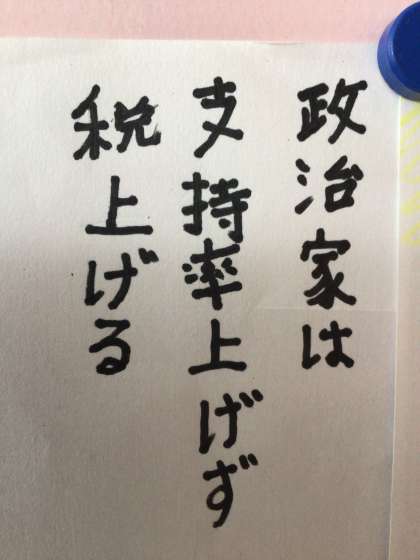 政治家は
支持率上げず
税上げる